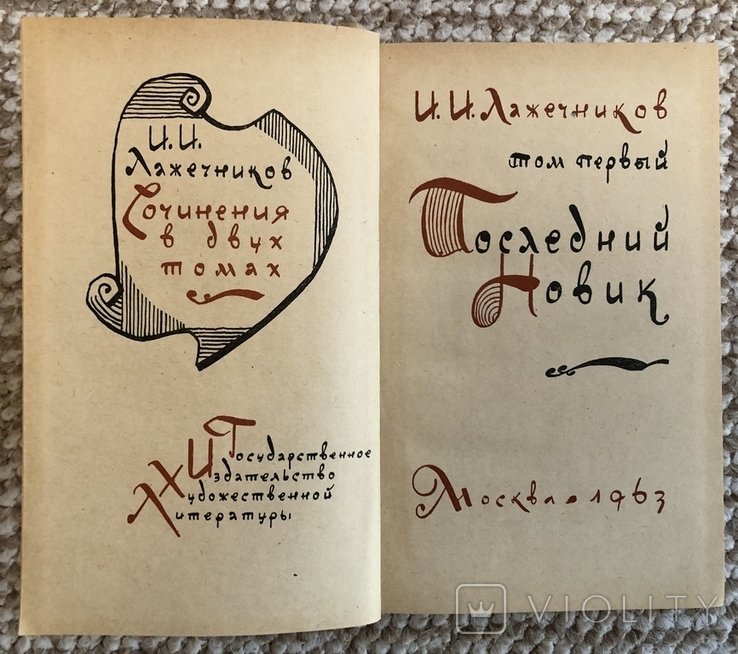 И. И.
Лажечников
Сочинения
в двух
томах
Государственное
Издательство
Художественной
Литературы
И. И. Лажечников
том первый
Последний
Новик
Москва • 1963
VIOLITY